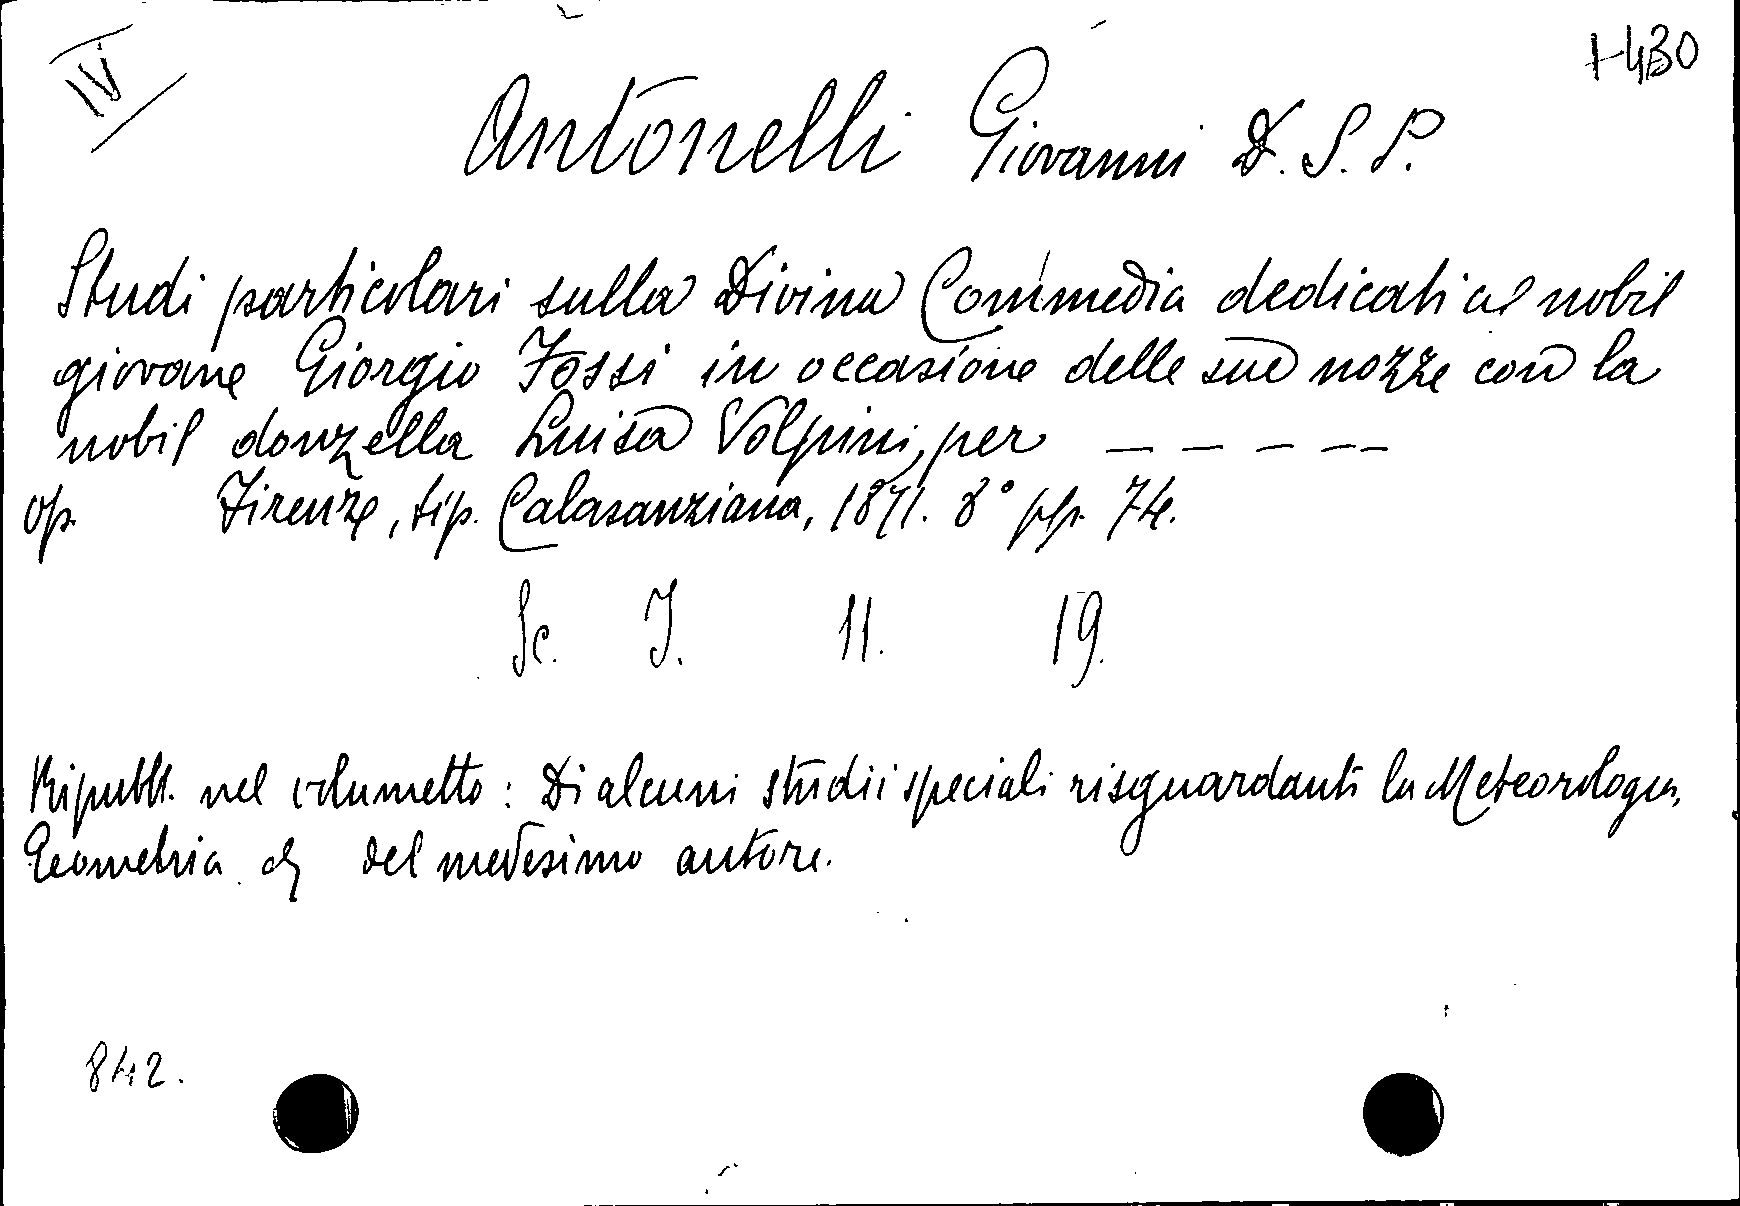 IV
1-430
Antonelli Giovanni D. S. P.
Studi particolari sulla Divina Commedia dedicati al nobil
giovane Giorgio Fossi in occasione delle sue nozze con la
nobil donzella Luisa Volpini, per _ _ _ _ _
op. Firenze, tip. Calasanziana, 1871. 8° pp. 74.
Sc. I. 11. 19.
Ripubbl. nel volumetto: Di alcuni studii speciali risguardanti la Meteorologia,
Geometria del medesimo autore.
842.